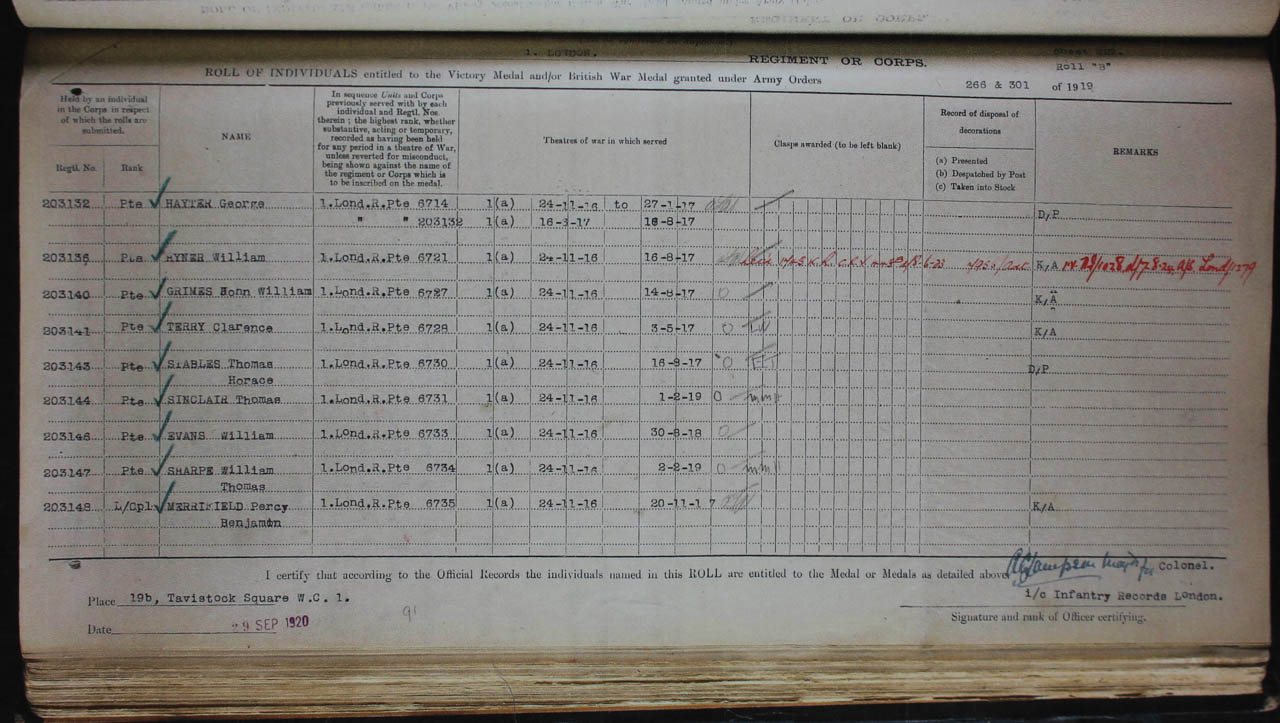 1. LONDON.
REGIMENT OR CORPS.
Roll "B"
ROLL OF INDIVIDUALS entitled to the Victory Medal and/or British War Medal granted under Army Orders
266 & 301 of 1919
Held by an individual in the Corps in respect of which the rolls are submitted.
Regtl. No.
Rank
NAME
In sequence Units and Corps
previously served with by each
individual and Regtl. Nos.
therein; the highest rank, whether
substantive, acting or temporary,
recorded as having been held
for any period in a theatre of War,
unless reverted for misconduct,
being shown against the name of
the regiment or Corps which is
to be inscribed on the medal.
Theatres of war in which served
Clasps awarded (to be left blank)
Record of disposal of
decorations
(a) Presented
(b) Despatched by Post
(c) Taken into Stock
REMARKS
203132 Pte HAYTER George 1.Lond.R.Pte 6714 1(a) 24-11-16 to 27-1-17
" " 203132 1(a) 16-3-17 16-8-17 D/P
203136 Pte HYNER William 1.Lond.R.Pte 6721 1(a) 24-11-16 16-8-17 K/A
203140 Pte GRIMES John William 1.Lond.R.Pte 6727 1(a) 24-11-16 14-8-17 0 K/A
203141 Pte TERRY Clarence 1.Lond.R.Pte 6728 1(a) 24-11-16 3-5-17 0 K/A
203143 Pte STABLES Thomas 1.Lond.R.Pte 6730 1(a) 24-11-16 16-8-17 0 D/P
Horace
203144 Pte SINCLAIR Thomas 1.Lond.R.Pte 6731 1(a) 24-11-16 1-2-19 0
203146 Pte EVANS William 1.Lond.R.Pte 6733 1(a) 24-11-16 30-8-18 0
203147 Pte SHARPE William 1.Lond.R.Pte 6734 1(a) 24-11-16 2-2-19 0
Thomas
203148 L/Cpl MERRIFIELD Percy 1.Lond.R.Pte 6735 1(a) 24-11-16 20-11-17 K/A
Benjamin
I certify that according to the Official Records the individuals named in this ROLL are entitled to the Medal or Medals as detailed above
Colonel.
Place 19b, Tavistock Square W.C. 1.
i/c Infantry Records London.
Date 29 SEP 1920
Signature and rank of Officer certifying.